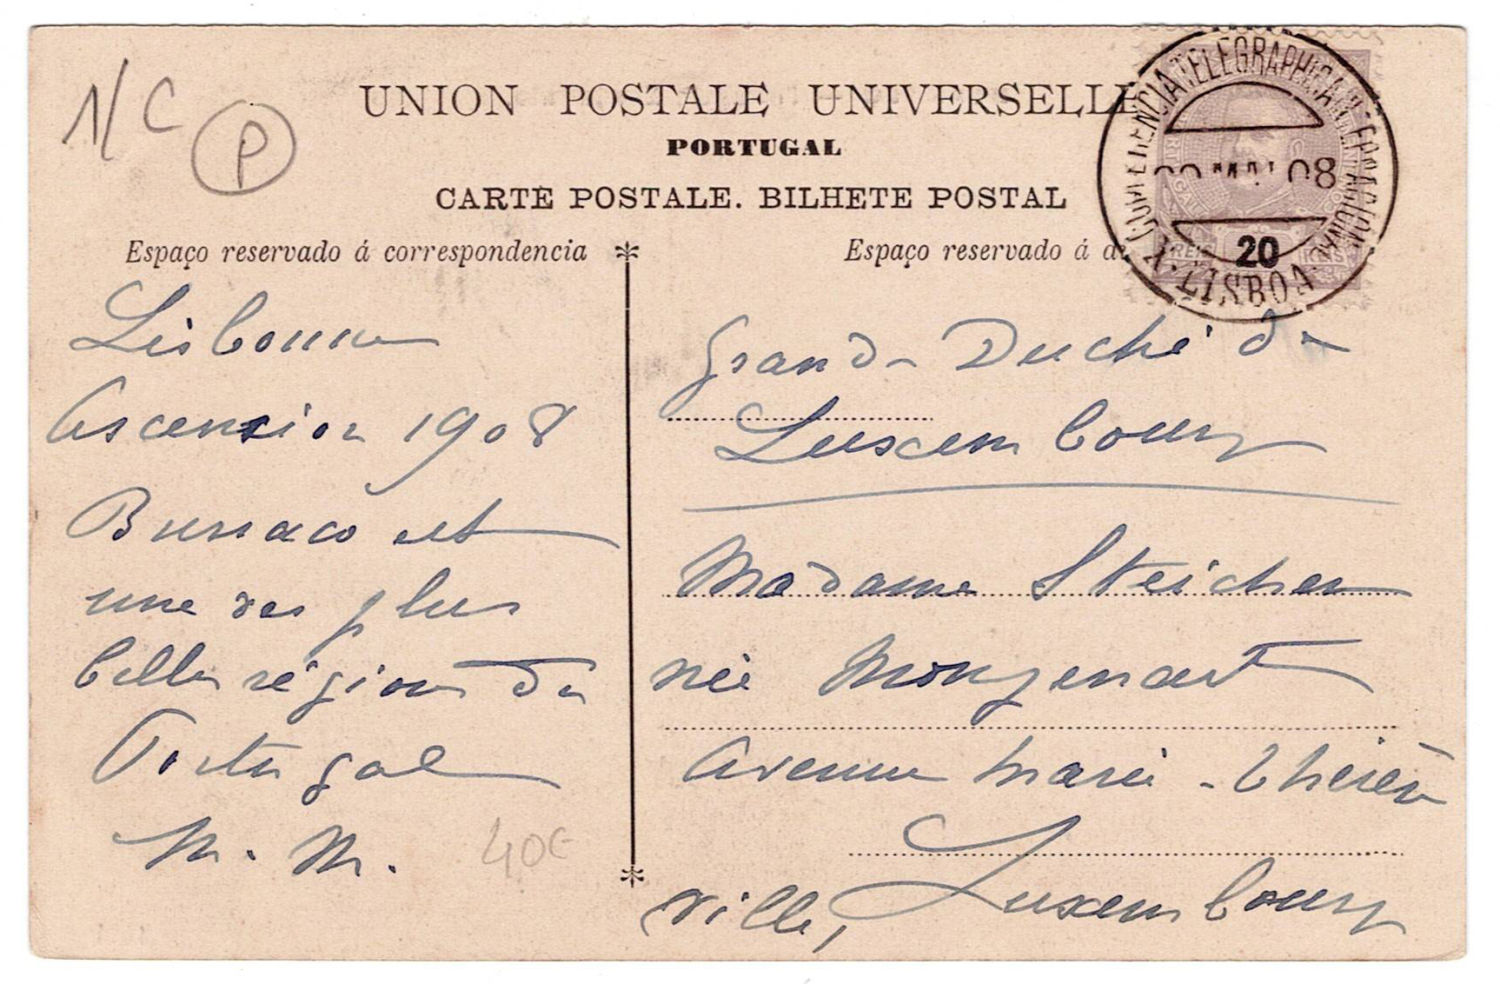 1/C P
UNION POSTALE UNIVERSELLE
PORTUGAL
CARTE POSTALE. BILHETE POSTAL
Espaço reservado á correspondencia
Espaço reservado á
TELEGRAPHICA
08
20
LISBOA
REIS
Lisbonne
Ascension 1908
Bussaco est
une des plus
belles régions du
Portugal
M. M.
40€
Grand-Duché de
Luxembourg
Madame Steichen
née Mongenast
Avenue Marie-Thérèse
Ville, Luxembourg